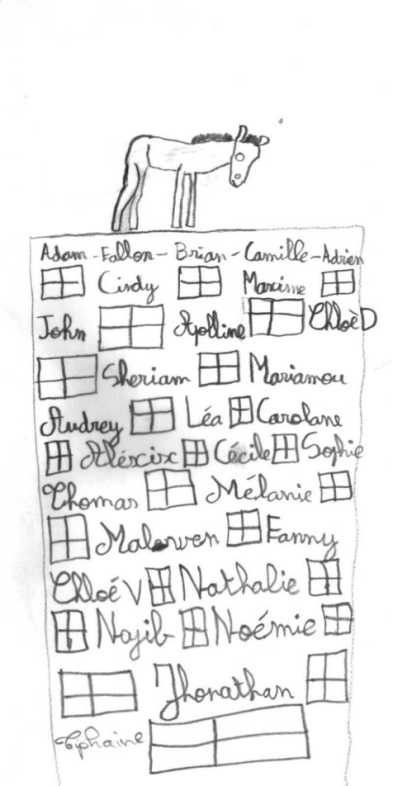 Adam - Fallon - Brian - Camille - Adrien
Cindy Maxime
John Apolline Chloè D
Sheriam Mariamou
Audrey Léa Carolane
Aléxix Cécile Sophie
Thomas Mélanie
Malorven Fanny
Chloé V Nathalie
Najib Noémie
Jhonathan
Tiphaine